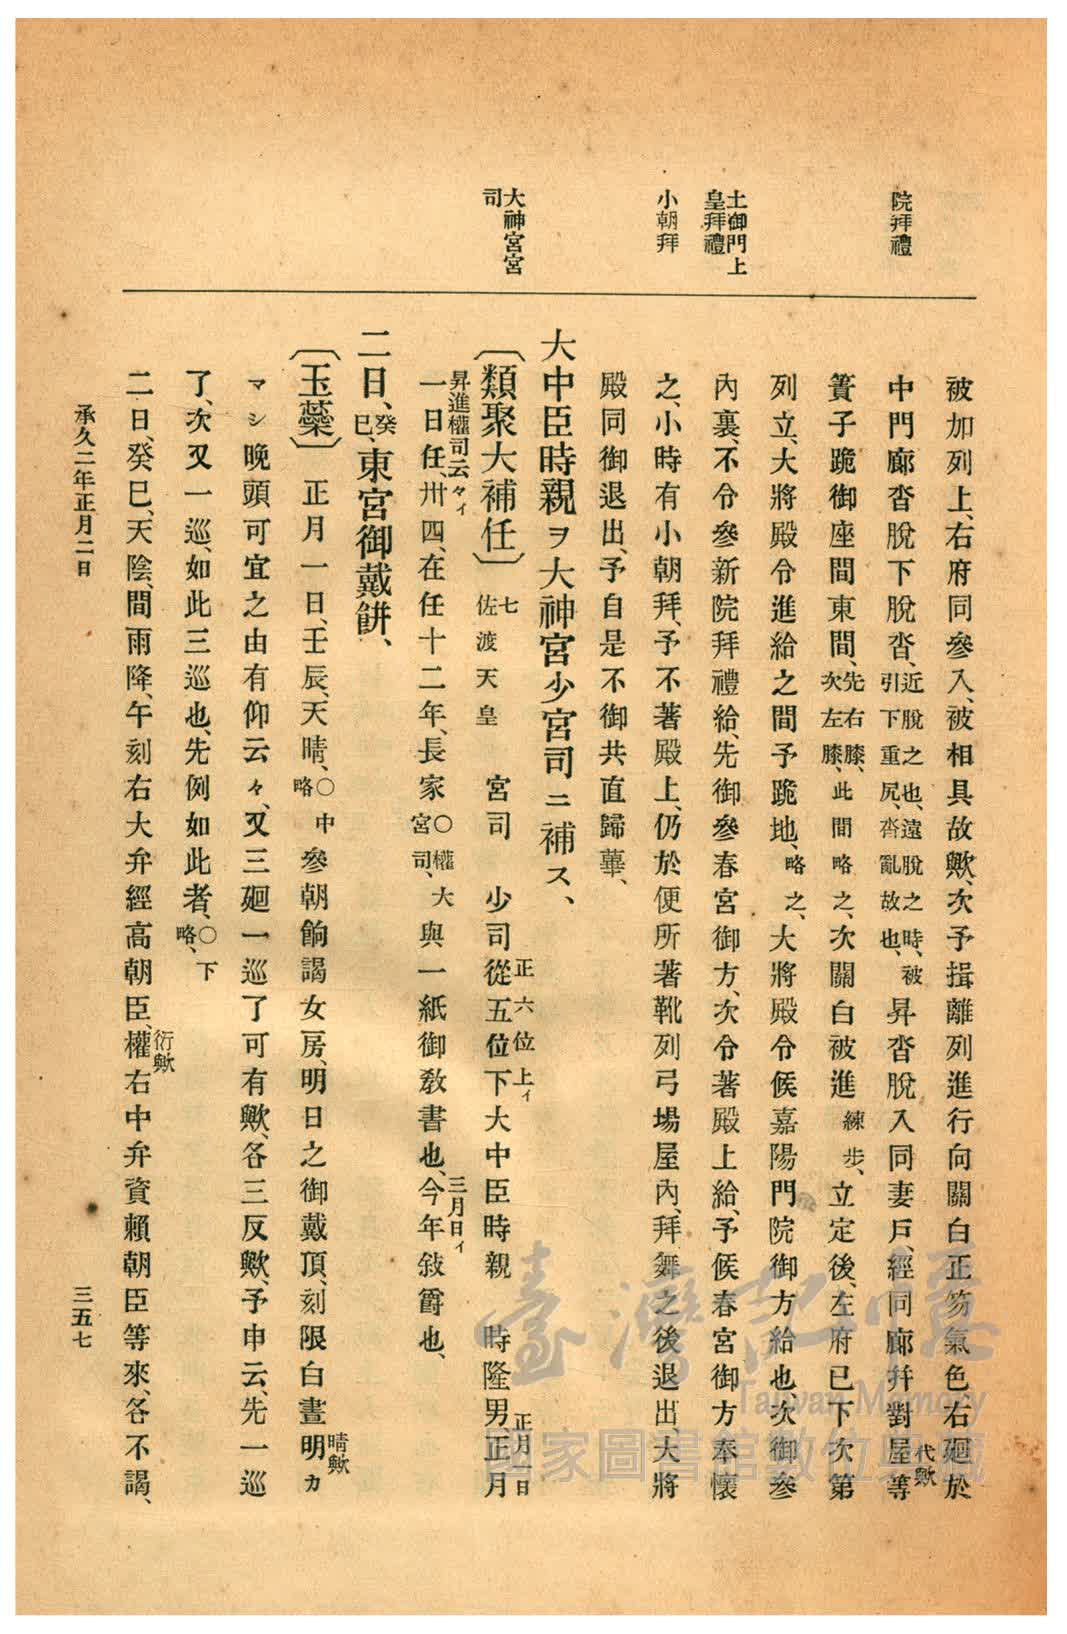 院拜禮
土御門上
皇拜禮
小朝拜
大神宮宮
司
被加列上、右府同參入、被相具故歟、次予揖離列進行向關白正笏氣色右廻於
中門廊沓脫下脫沓、近脫之也、遠脫之時、被引下重尻、沓亂故也、昇沓脫入同妻戶、經同廊幷對屋等代歟
簀子跪御座間東間、先右膝、次左膝、此間略之、次關白被進練步、立定後、左府已下次第
列立、大將殿令進給之間予跪地、略之、大將殿令候嘉陽門院御方給也次御參
內裏、不令參新院拜禮給、先御參春宮御方、次令著殿上給、予候春宮御方奉懷
之、小時有小朝拜、予不著殿上、仍於便所著靴列弓場屋內、拜舞之後退出、大將
殿同御退出、予自是不御共直歸華、
大中臣時親ヲ大神宮少宮司ニ補ス、
〔類聚大補任〕七 佐渡天皇 宮司 少司從五位下正六位上イ大中臣時親 時隆男正月正月一日
一日任、昇進權司云々イ卅四、在任十二年、長家〇權大宮司、與一紙御教書也、今年敍爵也、三月日イ
二日、癸巳、東宮御戴餅、
〔玉蘂〕正月一日、壬辰、天晴、〇中略參朝餉謁女房、明日之御戴頂、刻限白晝明晴歟カ
マシ晚頭可宜之由有仰云々、又三廻一巡了可有歟、各三反歟、予申云、先一巡
了、次又一巡、如此三巡也、先例如此者、〇下略、
二日、癸巳、天陰、間雨降、午刻右大弁經高朝臣、權衍歟右中弁資賴朝臣等來、各不謁、
承久二年正月二日
三五七
臺灣記憶
Taiwan Memory
國家圖書館數位典藏